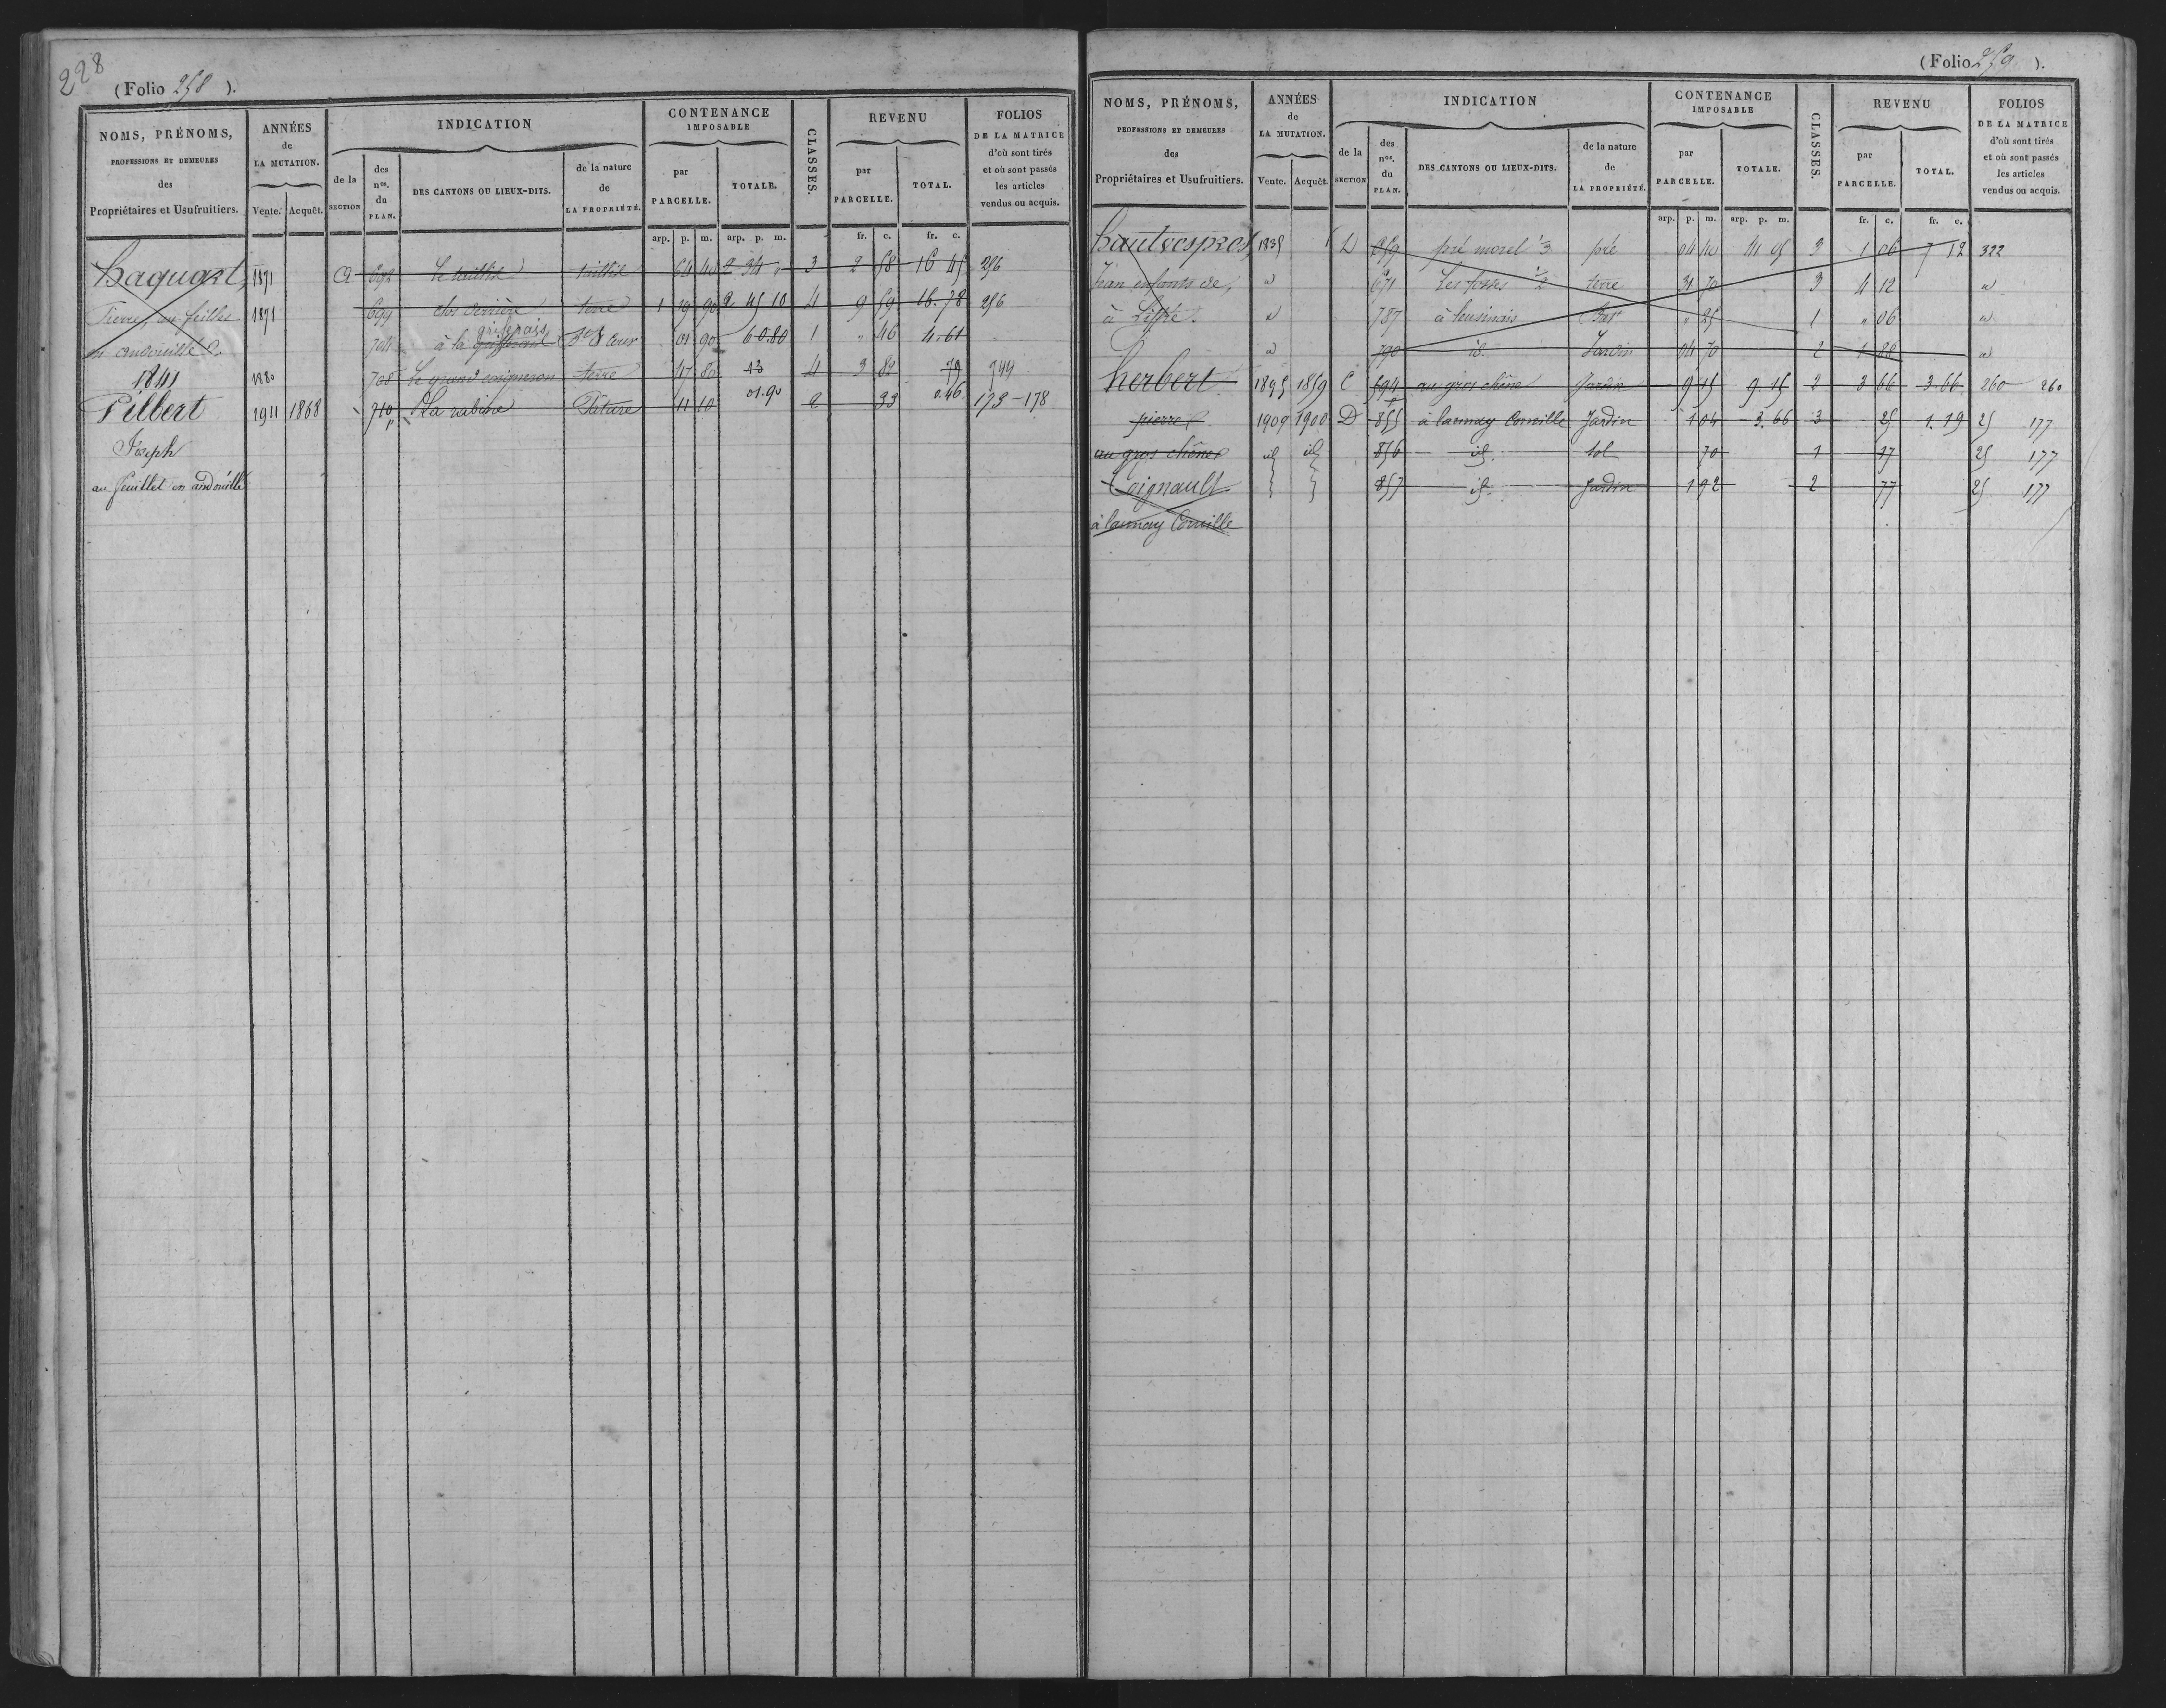 228
(Folio 258 ).
NOMS, PRÉNOMS,
PROFESSIONS ET DEMEURES
des
Propriétaires et Usufruitiers.
ANNÉES
de
LA MUTATION.
Vente. Acquêt.
INDICATION
de la
SECTION
des
nos.
du
PLAN.
DES CANTONS OU LIEUX-DITS.
de la nature
de
LA PROPRIÉTÉ.
CONTENANCE
IMPOSABLE
par
PARCELLE.
TOTALE.
CLASSES.
REVENU
par
PARCELLE.
TOTAL.
FOLIOS
DE LA MATRICE
d'où sont tirés
et où sont passés
les articles
vendus ou acquis.
arp. p. m. arp. p. m. fr. c. fr. c.
haquart, 1871 A 692 le taillis taillis 64 40 2 34 " 3 2 58 16 45 256
Pierre, au feillet 1871 699 clos derrière terre 1 19 90 2 45 10 4 9 59 16.78 256
en andouillé 704 à la Cour 01 90 60.80 1 " 46 4.61
1841 1880 708 le grand terre 47 80 13 4 3 82 79 744
Pilbert 1911 1868 710 p la rabine Pature 11 10 01.90 2 33 0.46 173-178
Joseph
au feuillet en andouillé
(Folio 259 ).
NOMS, PRÉNOMS,
PROFESSIONS ET DEMEURES
des
Propriétaires et Usufruitiers.
ANNÉES
de
LA MUTATION.
Vente. Acquêt.
INDICATION
de la
SECTION
des
nos.
du
PLAN.
DES CANTONS OU LIEUX-DITS.
de la nature
de
LA PROPRIÉTÉ.
CONTENANCE
IMPOSABLE
par
PARCELLE.
TOTALE.
CLASSES.
REVENU
par
PARCELLE.
TOTAL.
FOLIOS
DE LA MATRICE
d'où sont tirés
et où sont passés
les articles
vendus ou acquis.
arp. p. m. arp. p. m. fr. c. fr. c.
hautvesprés, 1835 D 359 pré morel 1/3 pré 04 40 41 05 3 1 06 7 12 322
Jean enfants de, " 671 Les fosses 1/2 terre 31 70 3 4 12 "
à Liffré. " 787 " 25 1 " 06 "
" 790 id. Jardin 04 70 2 1 88 "
herbert 1895 1859 C 594 p au gros chêne Jardin 9 15 9.15 2 3 66 3.66 260 260
pierre 1909 1900 D 855 à launay Corville Jardin 1 04 3.66 3 25 1.19 25 177
au gros chêne id id 856 id. sol 70 1 17 25 177
Coignault 857 id. Jardin 1 92 2 77 25 177
à launay Corville